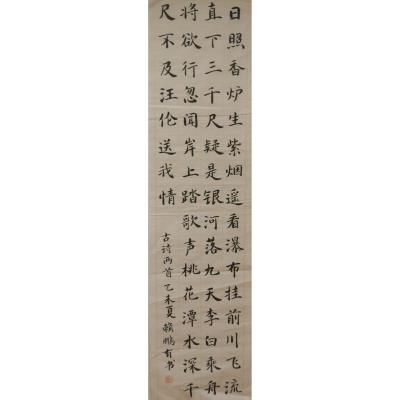 日照香炉生紫烟遥看瀑布挂前川飞流
直下三千尺疑是银河落九天李白乘舟
将欲行忽闻岸上踏歌声桃花潭水深千
尺不及汪伦送我情
古诗两首乙未夏赖鹏有书